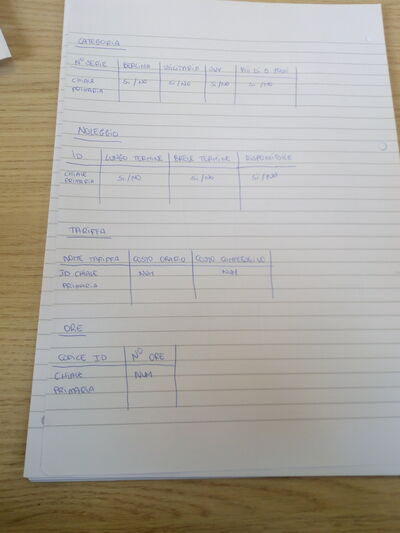 CATEGORIA
N° SERIE BERLINA UTILITARIA SUV PIÙ DI 5 POSTI
CHIAVE SI/NO SI/NO SI/NO SI/NO
PRIMARIA
NOLEGGIO
ID LUNGO TERMINE BREVE TERMINE DISPONIBILE
CHIAVE SI/NO SI/NO SI/NO
PRIMARIA
TARIFFA
NOME TARIFFA COSTO ORARIO COSTO COMPLESSIVO
ID CHIAVE NUM NUM
PRIMARIA
ORE
CODICE ID N° ORE
CHIAVE NUM
PRIMARIA